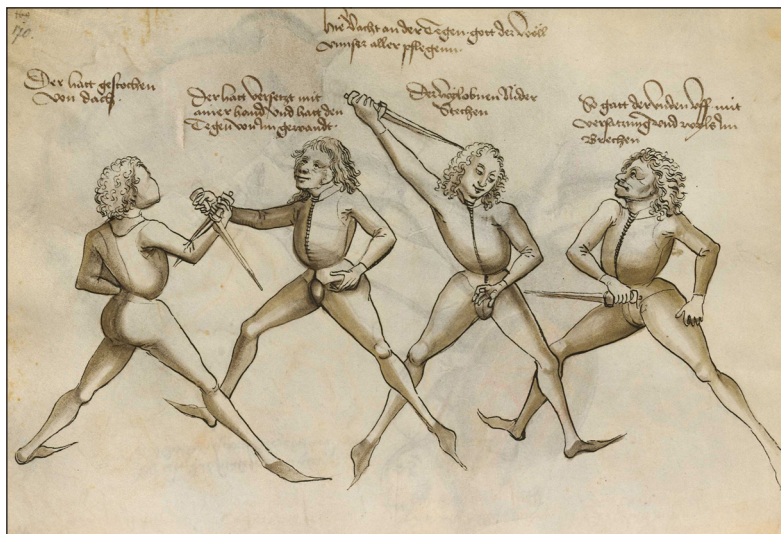 170
Hie vacht an der Degen gott der wöll
vnnser aller pflegenn.
Der hatt gestochen
von dach.
Der hatt versetzt mit
ainer hand, vnd hatt den
Tegen vm im gewandt.
Der wyl obnen Nider
Stechen
So gatt der vnden vff mit
versatzung vnd wyls Im
Brechen